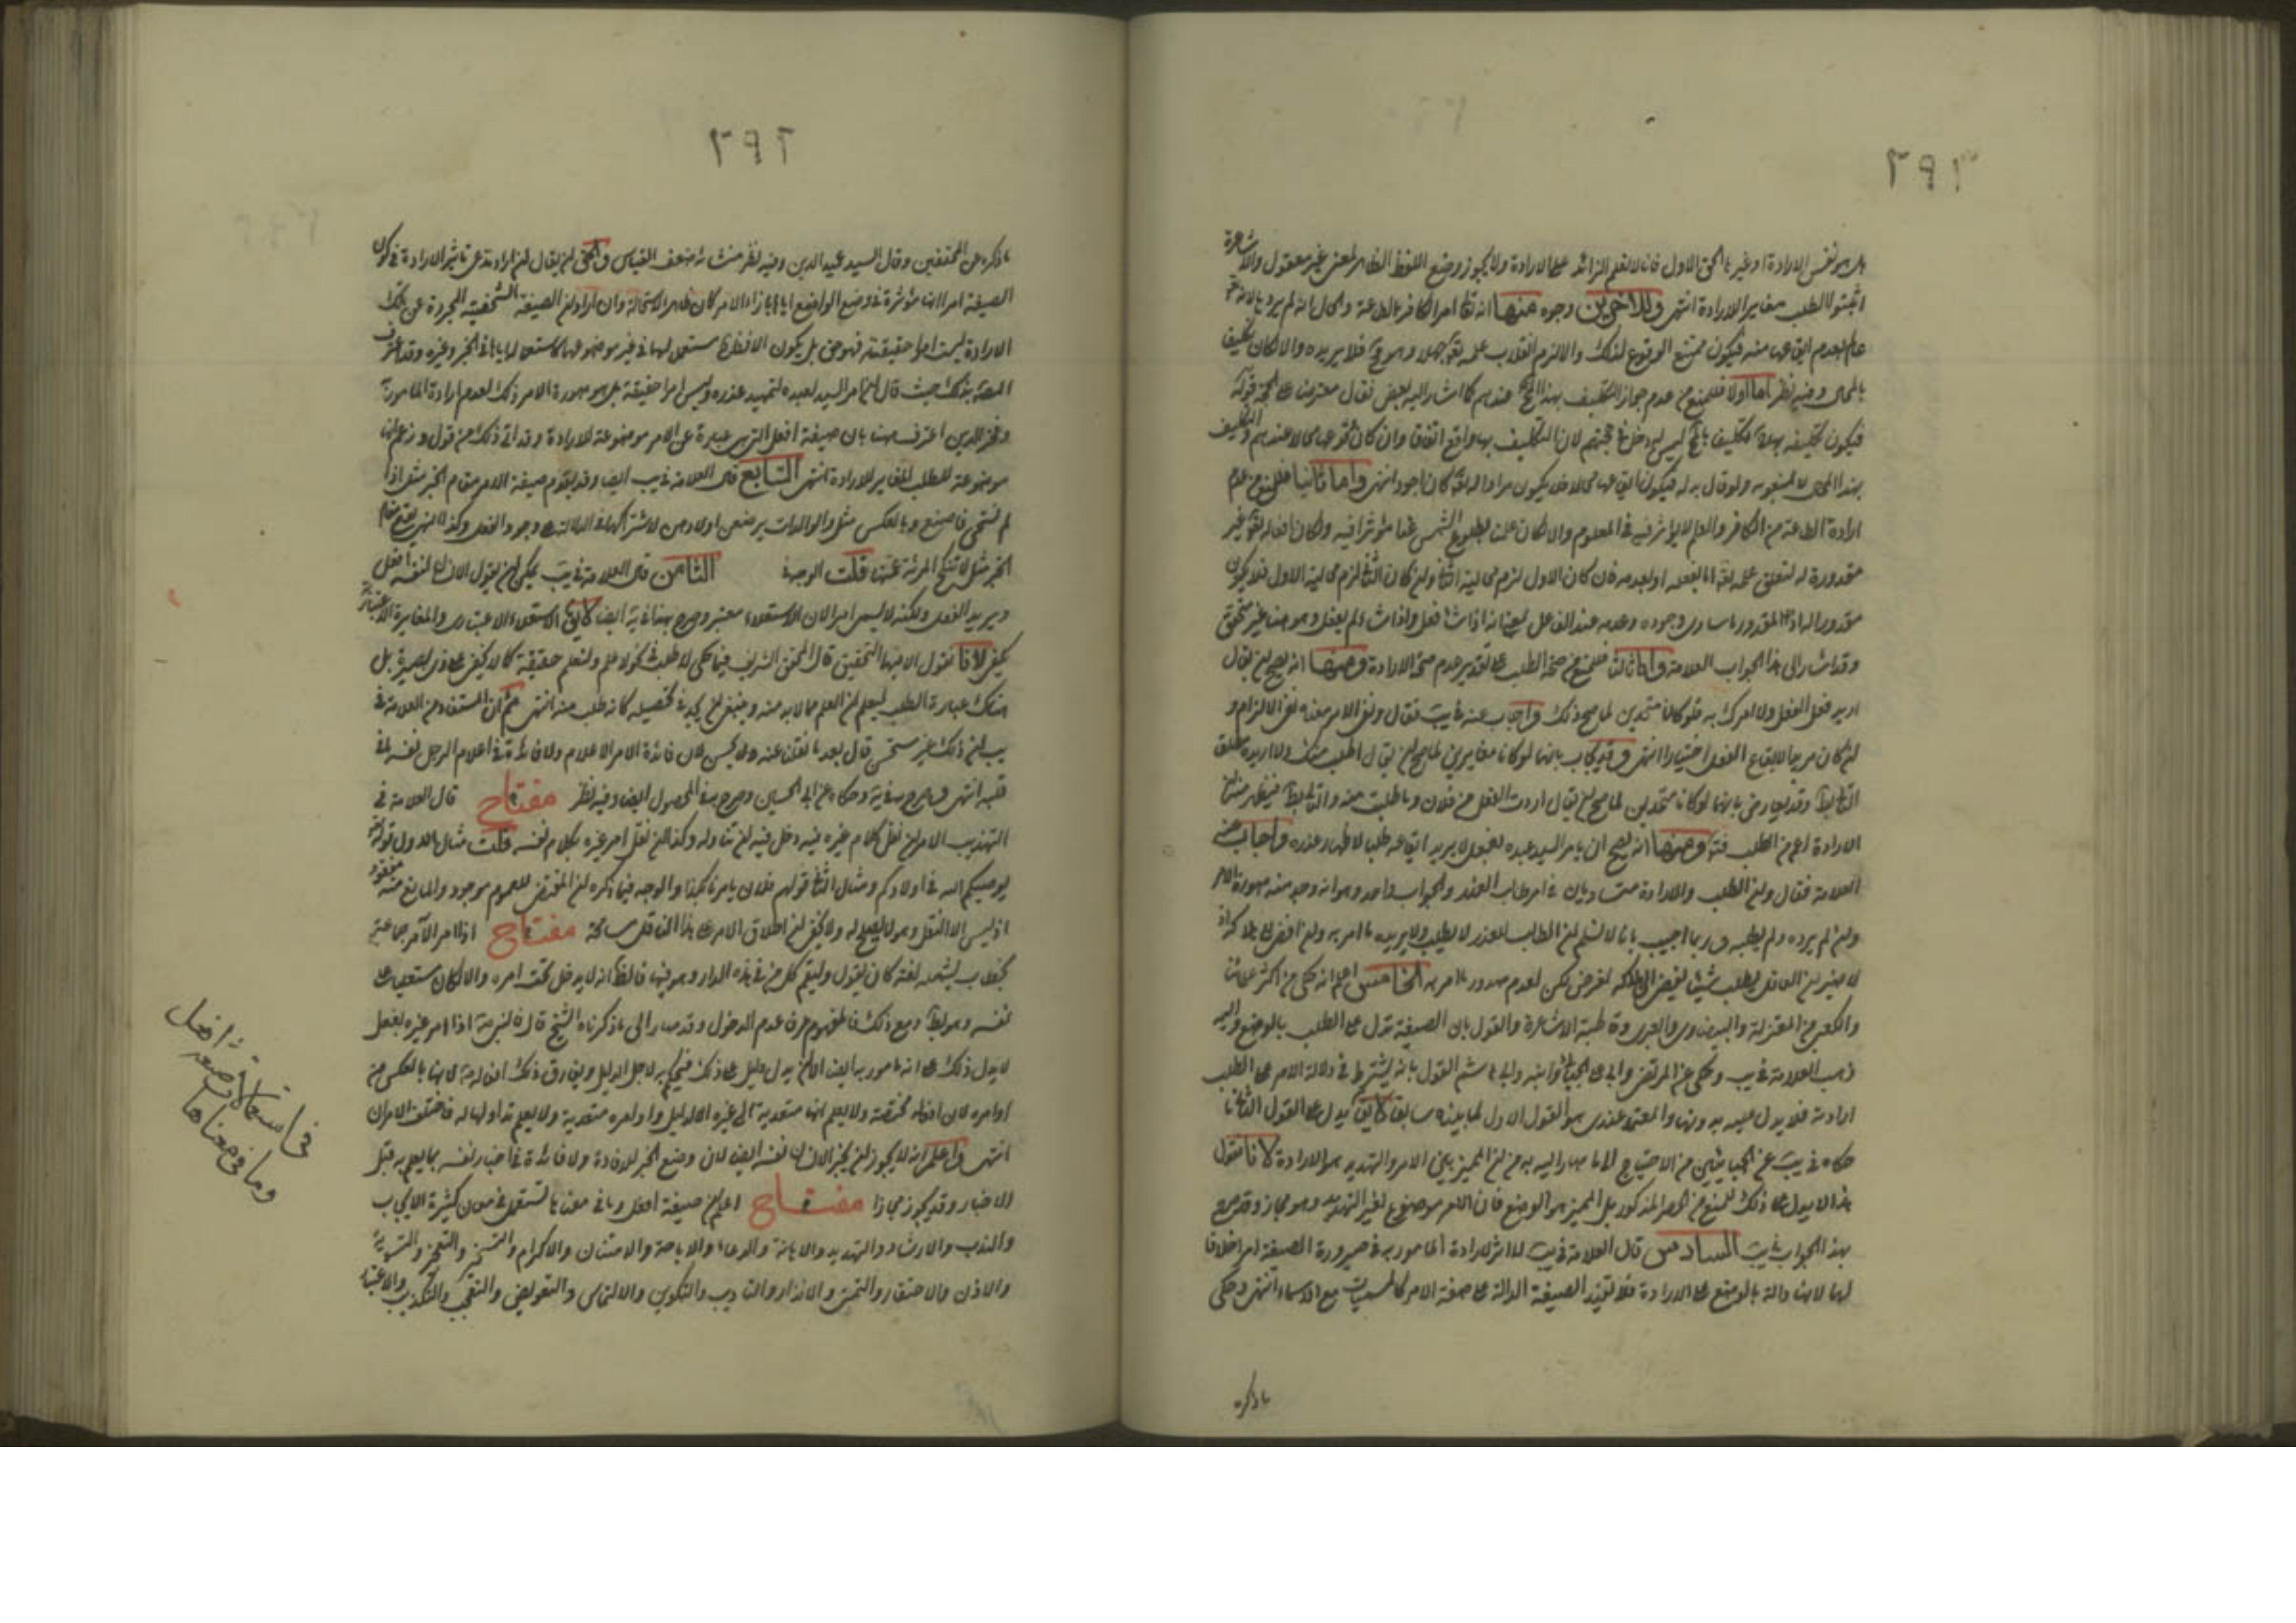 ٢٩٢
هل هو نفس الارادة او غيرها الحق الاول فانا لا نعلم الزائد على الارادة ولا يجوز وضع اللفظ الظاهر لمعنى غير معقول والاشاعرة
اثبتوا الطلب مغايرا للارادة انتهى وللاخرين وجوه منها انه تعالى امر الكافر بالطاعة والحال انه لم يردها لانه
عالم بعدم ايقاعها منه فيكون ممتنع الوقوع لذلك والا لزم انقلاب علمه تعالى جهلا وهو مح فلا يريده والا لكان تكليف
بالمحال وفيه نظر اما اولا فللمنع من عدم جواز التكليف بهذا المحال عندهم كما اشار اليه بعض فقال معترضا على الحجة قوله
فيكون تكليفه بها تكليفا بالمحال ليس له دخل في حجتهم لان التكليف بها واقع اتفاقا وان كان وقوعها محالا عندهم والتكليف
بهذا المحال لا يمنعونه ولو قال بدله فيكون ايقاعها محالا فلا يكون مرادا له تعالى كان اجود انتهى واما ثانيا فللمنع من عدم
ارادة الطاعة من الكافر والعلم لا يؤثر فيه في المعلوم والا لكان علمنا بطلوع الشمس غدا مؤثرا فيه ولكان افعاله تعالى غير
مقدورة له لتعلق علمه تعالى اما بفعله او بعدمه فان كان الاول لزم محالية الثاني وان كان الثاني لزم محالية الاول فلا يكون
مقدورا له اذ المقدور ما ساوى وجوده وعدمه عند الفاعل بمعنى انه اذا شاء فعل واذا شاء لم يفعل وهو هنا غير متحقق
وقد اشار الى هذا الجواب العلامة واما ثالثا فللمنع من صحة الطلب على تقدير عدم صحة الارادة ومنها انه يصح ان يقول
اريد فعل الفعل ولا امرك به فلو كانا متحدين لما صح ذلك واجاب عنه في يب فقال ونفي الامر معناه نفي الالزام و
ان كان مريدا لايقاع الفعل اختيارا انتهى وقد يجاب بانهما لو كانا مغايرين لما صح ان يقال اطلب منك ولا اريده مطلقا
التالي بط وقد يعارض بانهما لو كانا متحدين لما صح ان يقال اردت الفعل من فلان وما طلبت منه والتالي بط فيظهر منه ان
الارادة اعم من الطلب فته ومنها انه يصح ان يامر السيد عبده بفعل لا يريد ايقاعه طلبا لاظهار عذره واجاب عنه
العلامة فقال وان الطلب والارادة متساويان في امر طالب العذر والجواب واحد وهو انه وجد منه صورة الامر
وان لم يرده ولم يطلبه وربما اجيب بانا لا نسلم ان الطالب للعذر لا يطلب ولا يريد ما امر به وان افضى الى هلاكه اذ
لا ضير ان العاقل يطلب شيئا يفضى الى هلاكه لغرض لكن لعدم صدور ما امر به الخامس اعلم انه حكى من اكثر
والكعبي من المعتزلة والبيضاوي والعبري وقاطبة الاشاعرة والقول بان الصيغة تدل على الطلب بالوضع واليه
ذهب العلامة في يب وحكى عن المرتضى وابي على الجبائي وابنه وابي هاشم القول بانه يشترط في دلالة الامر على الطلب
ارادته فلا يدل عليه بدونها والمعتمد عندي هو القول الاول لما بيناه سابقا لا يق يدل على القول الثاني ما
حكاه في يب عن الجبائيين من الاحتياج الى ما صار اليه به من ان المميز بين الامر والتهديد هو الارادة لانا نقول
هذا لا يدل على ذلك للمنع من الحصر المذكور بل المميز هو الوضع فان الامر موضوع لغير التهديد وهو مجاز وقد صرح
بهذا الجواب في يب السادس قال العلامة في يب لا اثر لارادة المامور به في صيرورة الصيغة امرا خلافا
لهما لانها دالة بالوضع على الارادة فلا تفيد الصيغة الدالة عليها صفة الامر كالمسميات مع الاسماء انتهى وحكى
ما ذكره
٢٩٢
ما ذكره عن المحققين وقال السيد عميد الدين وفيه نظر منشأه ضعف القياس والحق ان يقال ان اراد بتاثير الارادة في كون
الصيغة امرا انها مؤثرة في وضع الواضع اياها بازاء الامر كان ظاهر الاستحالة وان اراد ان الصيغة الشخصية المجردة عن تلك
الارادة ليست امرا حقيقة فهو حق بل يكون اللافظ بها مستعملا لها في غير موضوعها كاستعماله اياها في الخبر وغيره وقد اعترف
المصنف بذلك حيث قال ان امر السيد لعبده لتمهيد عذره وليس امرا حقيقة بل هو صورة الامر وذلك لعدم ارادة المامور به
وفخر الدين اعترف هنا بان صيغة افعل التي هي عبارة عن الامر موضوعة للارادة وقد اتى ذلك من قوله وزعم انها
موضوعة للطلب المغاير للارادة انتهى السابع قال العلامة في يب ايضا وقد يقوم صيغة الامر مقام الخبر مثل اذا
لم تستحي فاصنع وبالعكس مثل والوالدات يرضعن اولادهن لاشتراكهما في الدلالة على وجود الفعل وكذا النهي يقوم مقام
الخبر مثل لا تنكح المرئة عمتها قلت الوجه في الثامن قال العلامة في يب يمكن ان يقول الانسان لنفسه افعل
ويريد الفعل ولكنه لا يسمى امرا لان الاستعلاء معتبر وصرح بهذا في يه ايضا لا يق الاستعلاء الاعتباري والمغايرة الاعتبارية
يكفي لانا نقول الامر هنا التحقيق قال المحقق الشريف فيما حكى لا طلب في كولا علم ولنعلم حقيقة كما لا يخفى على ذي بصيرة بل
هناك عبارة الطلب ليعلم ان العلم مما لا بد منه وينبغي ان يجد في تحصيله كانه طلب منه انتهى ثم ان المستفاد من العلامة في
يب ان ذلك غير مستحسن قال بعد ما نقلنا عنه ولا يحسن لان فائدة الامر الاعلام ولا فائدة في اعلام الرجل نفسه ما في
قلبه انتهى وصرح به في يه وحكاه عن ابي الحسين وصرح به في المحصول ايضا وفيه نظر مفتاح قال العلامة في
التهذيب الامر ان نقل كلام غيره فيه دخل فيه ان تناوله وكذا ان نقل امر غيره بكلام نفسه قلت مثال الاول قوله تعالى
يوصيكم الله في اولادكم ومثال الثاني قولهم فلان يامرنا بكذا والوجه فيما ذكره ان المقتضى للعموم موجود والمانع منه مفقود
اذ ليس الا النقل وهو لا يصلح له ولا يخفى ان اطلاق الامر على هذا الناقل مسامحة مفتاح اذا امر الآمر جماعة
بخطاب يشمله لغة كان يقول وليقم كل من في هذه الدار وهو فيها فالظ انه لا يدخل تحت امره والا لكان مستعليا على
نفسه وهو بط ومع ذلك فالمفهوم عرفا عدم الدخول وقد صار الى ما ذكرناه الشيخ قال النبي اذا امر غيره بفعل
لا يدل ذلك على انه مامور به ايضا الا ان يدل دليل على ذلك فيحكم به لاجل الدليل ويفارق ذلك افعاله لانها بالعكس من
اوامره لان افعاله مختصة ولا يعلم انها متعدية الى غيره الا بدليل واوامره متعدية ولا يعلم تناولها له فاختلف الامران
انتهى واعلم انه لا يجوز ان يخبر الانسان نفسه ايضا لان وضع الخبر للافادة ولا فائدة في اخبار نفسه بما يعلم به قبل
الاخبار وقد يجوز مجازا مفتاح اعلم ان صيغة افعل وما في معناها تستعمل في معان كثيرة الايجاب
والندب والارشاد والتهديد والاهانة والدعاء والاباحة والامتنان والاكرام والتسخير والتعجيز والتسوية
والاذن والاحتقار والتمني والانذار والتاديب والتكوين والالتماس والتفويض والتعجب والتكذيب والاعتبار
في استعمالات صيغة افعل
وما في معناها